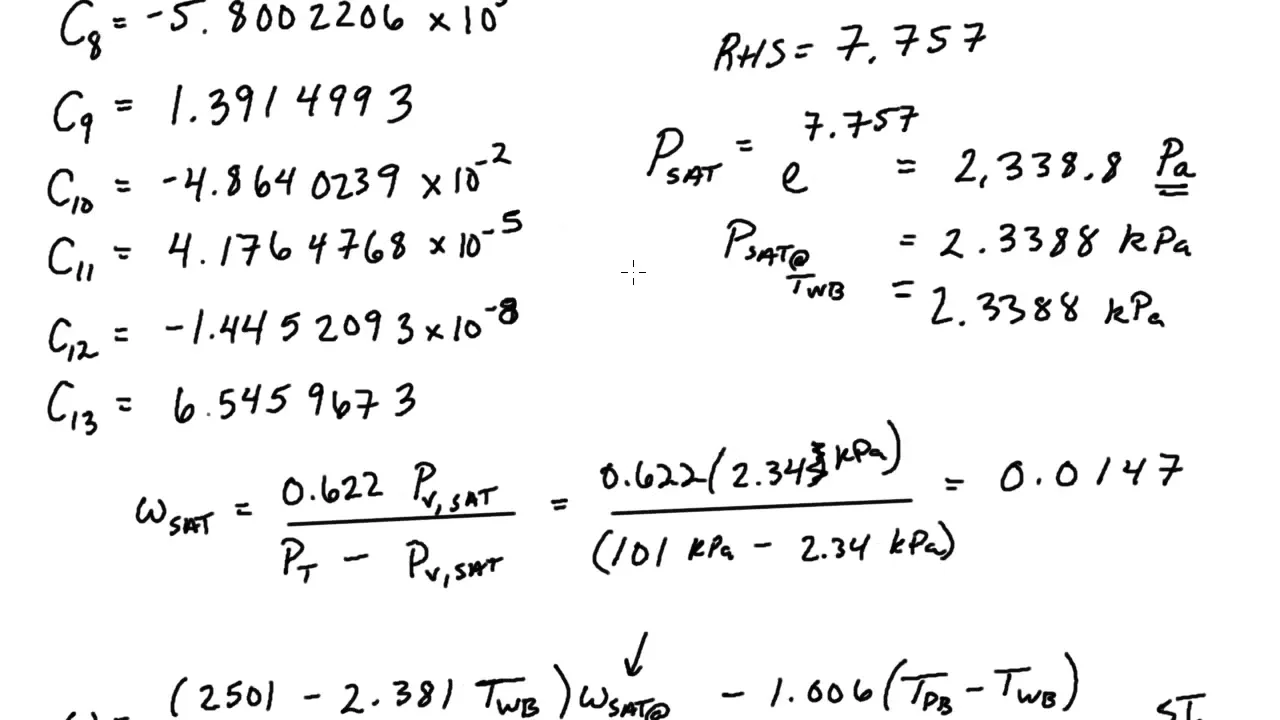 C8 = -5.8002206 x 10
C9 = 1.3914993
C10 = -4.8640239 x 10^-2
C11 = 4.1764768 x 10^-5
C12 = -1.4452093 x 10^-8
C13 = 6.5459673
RHS = 7.757
P_SAT = e^7.757 = 2,338.8 Pa
P_SAT@T_WB = 2.3388 kPa
= 2.3388 kPa
ω_SAT = 0.622 P_v,SAT / (P_T - P_v,SAT) = 0.622 (2.34 kPa) / (101 kPa - 2.34 kPa) = 0.0147
(2501 - 2.381 T_WB) ω_SAT@ - 1.006 (T_DB - T_WB)